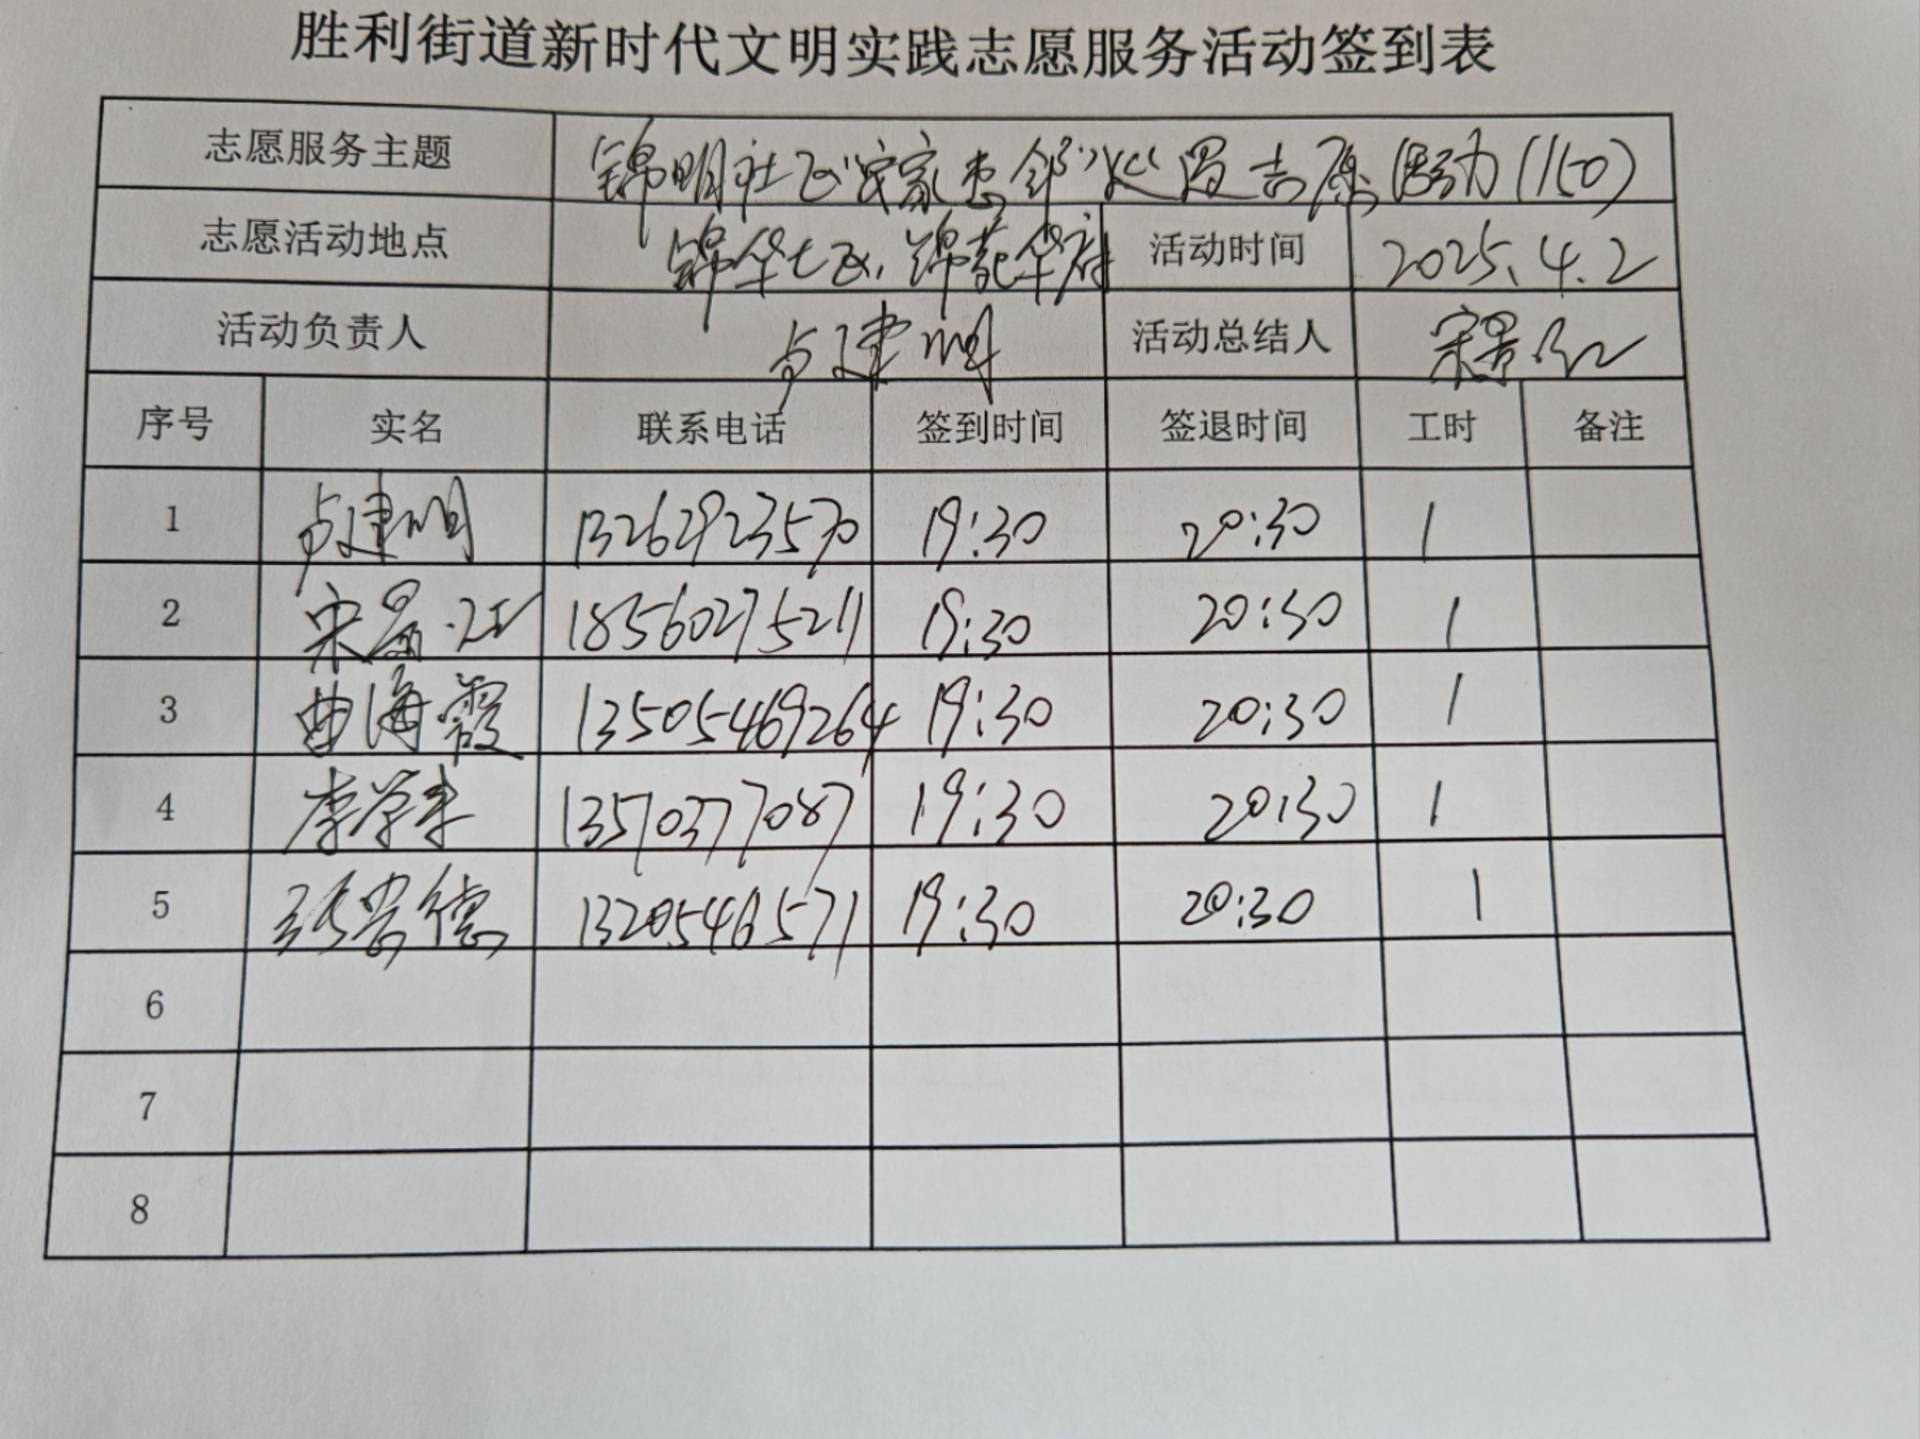 胜利街道新时代文明实践志愿服务活动签到表
志愿服务主题 锦明社区 志愿活动(150)
志愿活动地点 锦华七区、锦苑华府 活动时间 2025.4.2
活动负责人 建明 活动总结人 宋景红
序号 实名 联系电话 签到时间 签退时间 工时 备注
1 建明 13262923570 19:30 20:30 1
2 宋景红 183560275211 19:30 20:30 1
3 曲海霞 13505469264 19:30 20:30 1
4 李学来 13570377087 19:30 20:30 1
5 张 德 13205461571 19:30 20:30 1
6
7
8